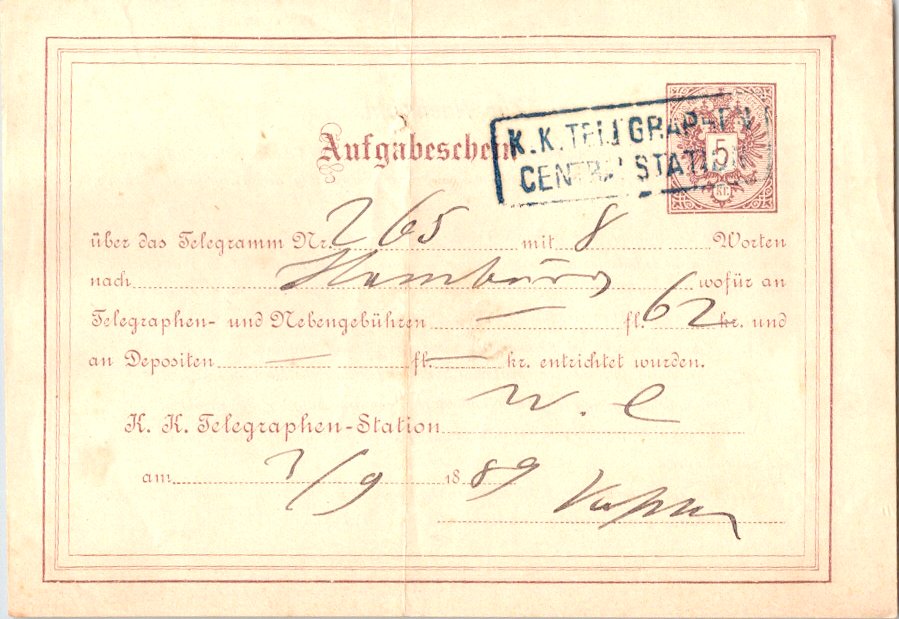 K. K. TELEGRAPHEN
CENTRAL STATION
Aufgabeschein
5
KR.
über das Telegramm Nr. 265 mit 8 Worten
nach Hamburg wofür an
Telegraphen- und Nebengebühren — fl. 62 kr. und
an Depositen — fl. — kr. entrichtet wurden.
K. K. Telegraphen-Station W. C
am /9 1889